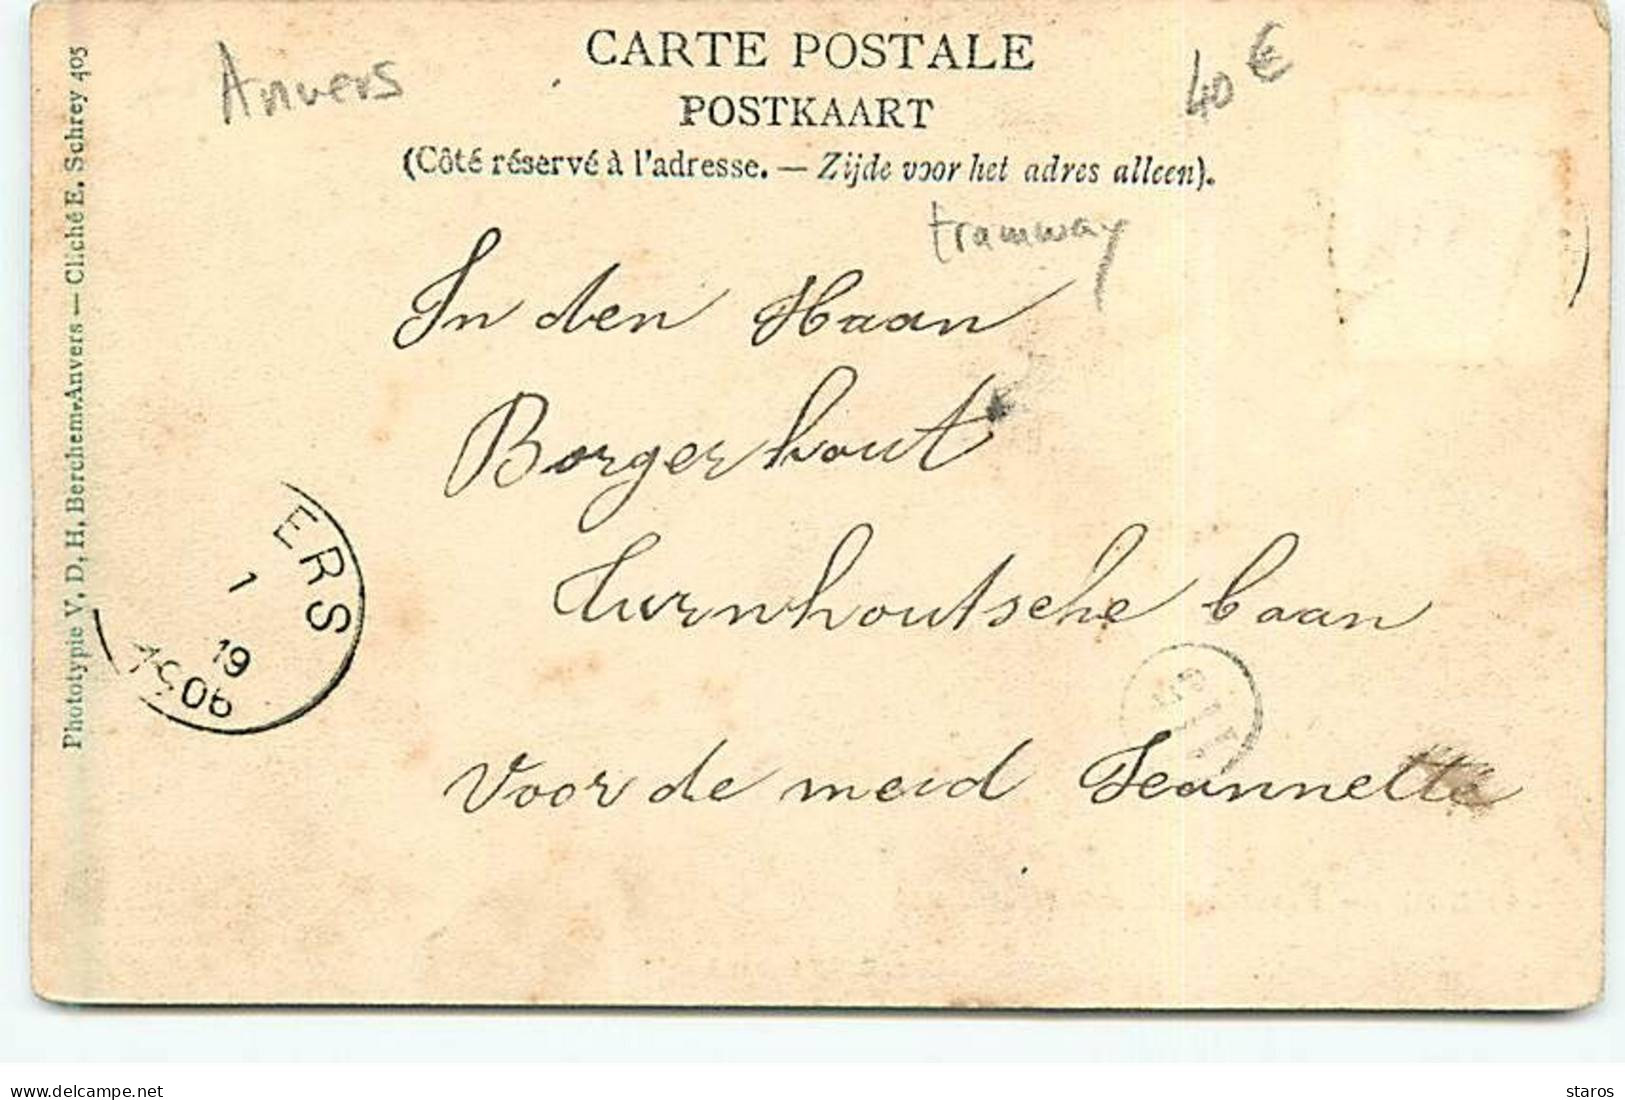 CARTE POSTALE
Anvers
40 €
POSTKAART
(Côté réservé à l'adresse. — Zijde voor het adres alleen).
tramway
In den Haan
Borgerhout
Turnhoutsche baan
Voor de meid Jeannette
ERS
1
19
Phototypie V. D. H. Berchem-Anvers — Cliché E. Schrey 405
www.delcampe.net
staros